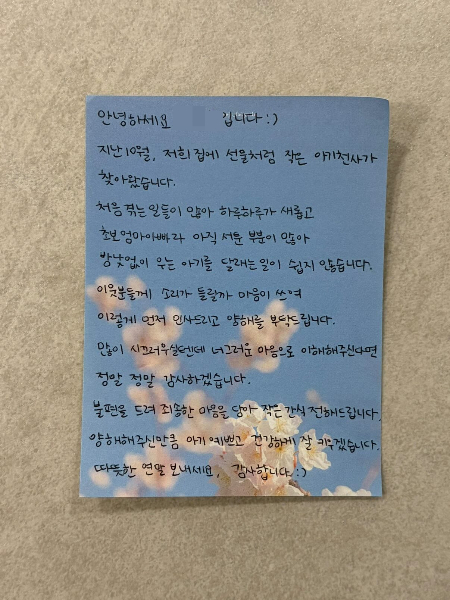 안녕하세요 입니다 :)
지난 10월, 저희 집에 선물처럼 작은 아기천사가
찾아왔습니다.
처음 겪는 일들이 많아 하루하루가 새롭고
초보 엄마아빠라 아직 서툰 부분이 많아
밤낮없이 우는 아기를 달래는 일이 쉽지 않습니다.
이웃분들께 소리가 들릴까 마음이 쓰여
이렇게 먼저 인사드리고 양해를 부탁드립니다.
많이 시끄러우실텐데 너그러운 마음으로 이해해주신다면
정말 정말 감사하겠습니다.
불편을 드려 죄송한 마음을 담아 작은 간식 전해드립니다.
양해해주신만큼 아기 예쁘고 건강하게 잘 키우겠습니다.
따뜻한 연말 보내세요, 감사합니다 :)